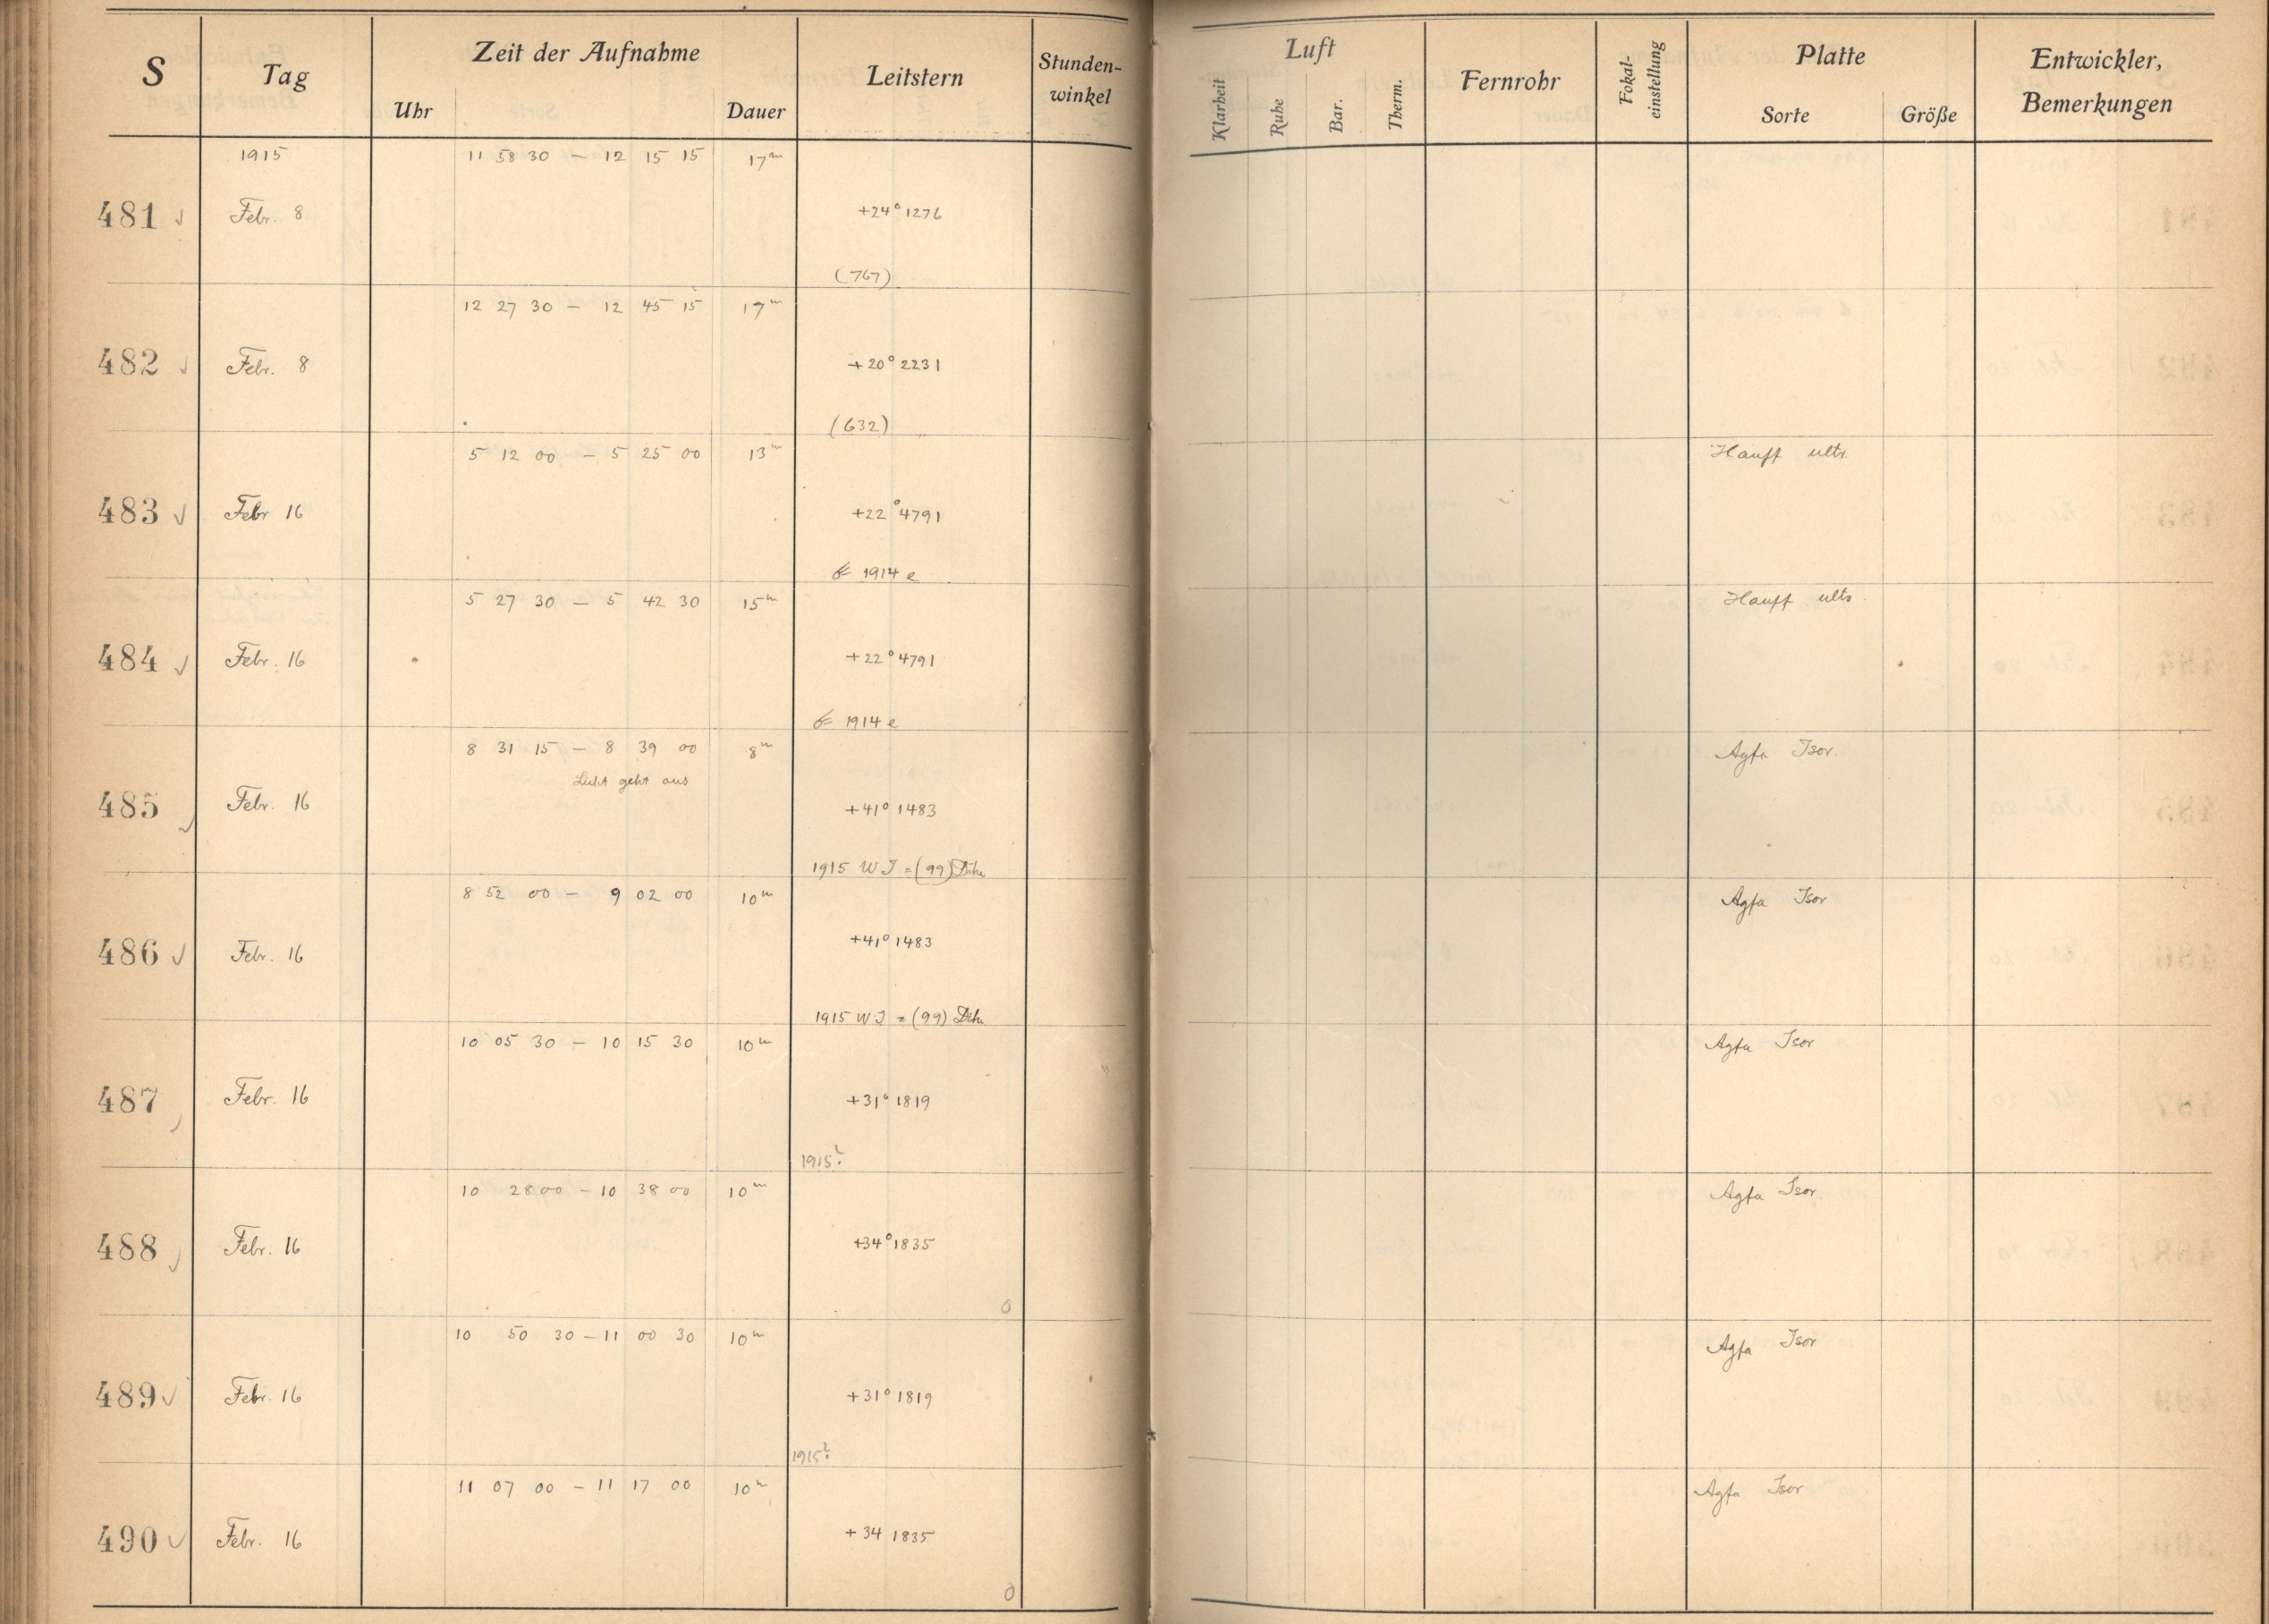 S Tag Zeit der Aufnahme Leitstern Stunden-
winkel
Uhr Dauer
Luft Fernrohr Fokal-
einstellung Platte Entwickler,
Bemerkungen
Klarheit Ruhe Bar. Therm. Sorte Größe
1915 11 58 30 — 12 15 15 17m
481 Febr. 8 +24° 1276
(767)
12 27 30 — 12 45 15 17m
482 Febr. 8 +20° 2231
(632)
5 12 00 — 5 25 00 13m Hauff ultr.
483 Febr 16 +22° 4791
1914 e
5 27 30 — 5 42 30 15m Hauff ultr.
484 Febr. 16 +22° 4791
1914 e
8 31 15 — 8 39 00 8m Agfa Isor.
Licht geht aus
485 Febr. 16 +41° 1483
1915 WJ = (99) Dike
8 52 00 — 9 02 00 10m Agfa Isor
486 Febr. 16 +41° 1483
1915 WJ = (99) Dike
10 05 30 — 10 15 30 10m Agfa Isor
487 Febr. 16 +31° 1819
1915?
10 28 00 — 10 38 00 10m Agfa Isor
488 Febr. 16 +34° 1835
0
10 50 30 — 11 00 30 10m Agfa Isor
489 Febr. 16 +31° 1819
1915?
11 07 00 — 11 17 00 10m Agfa Isor
490 Febr. 16 +34 1835
0